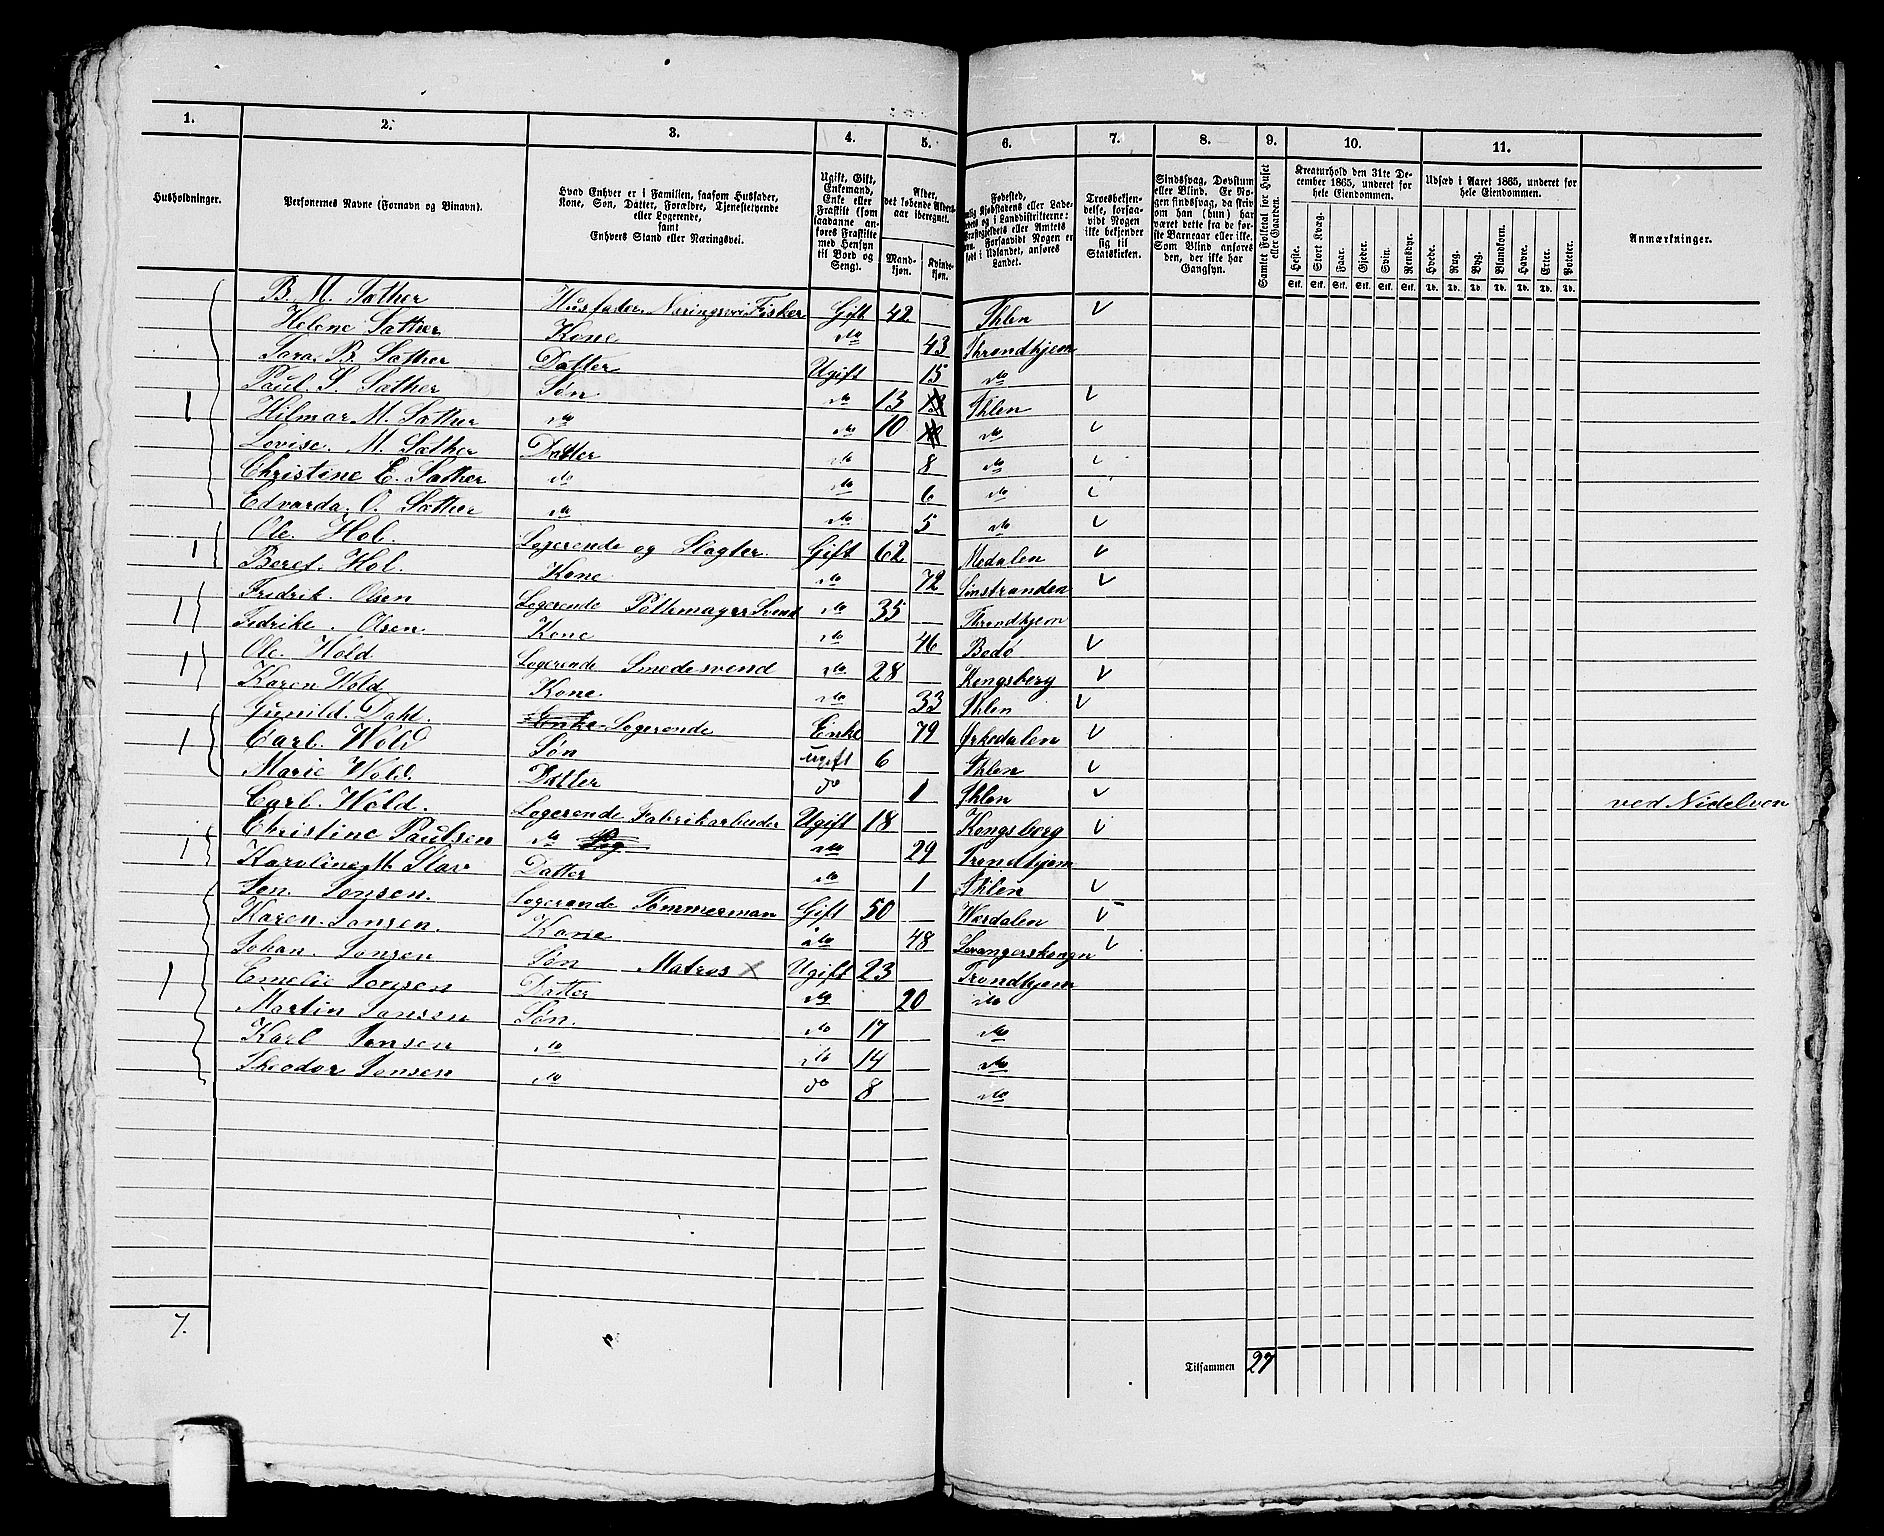 1. 2. 3. 4. 5. 6. 7. 8. 9. 10. 11.
Husholdninger.
Personernes Navne (Fornavn og Binavn).
Hvad Enhver er i Familien, saasom Husfader, Kone, Søn, Datter, Forældre, Tjenestetyende eller Logerende, samt Enhvers Stand eller Næringsvei.
Ugift, Gift, Enkemand, Enke eller Fraskilt (som saadanne anføres Fraskilte med Hensyn til Bord og Seng).
Alder, det løbende Aldersaar iberegnet.
Mandkjøn. Kvindekjøn.
Fødested,
Troesbekjendelse, forsaavidt Nogen ikke bekjender sig til Statskirken.
Sindssvag, Døvstum eller Blind. Er Nogen sindssvag, da skriv om han (hun) har været dette fra de første Barneaar eller ikke. Som Blind anføres den, der ikke har Gangsyn.
Samlet Folketal for Huset eller Gaarden.
Kreaturhold den 31te December 1865, underet for hele Eiendommen.
Heste. Stort Kvæg. Faar. Gjeder. Svin. Rensdyr.
Udsæd i Aaret 1865, underet for hele Eiendommen.
Hvede. Rug. Byg. Blandkorn. Havre. Erter. Poteter.
Anmærkninger.
B. M. Sæther Husfader Næringsvei Fisker Gift 42 Ihlen
Helene Sæther Kone do 43 Throndhjem
Tora. B. Sæther Datter Ugift 15 do
1 Paul. S. Sæther Søn do 13 Ihlen
Hilmar M. Sæther do do 10 do
Lovise. M. Sæther Datter do 8 do
Christine E. Sæther do do 6 do
Edvarda. O. Sæther do do 5 do
1 Ole Hol. Logerende og Slagter Gift 62 Medalen
Beret. Hol. Kone do 72
1 Fridrik Olsen Logerende Svend do 35 Throndhjem
Fidrike. Olsen Kone do 46 Bodø
1 Ole. Wold Logerende Smedesvend do 28 Kongsberg
Karen Wold Kone. do 33 Ihlen
Gunild. Dahl. Enke Logerende Enke 79 Ørkedalen
1 Carl. Wold Søn ugift 6 Ihlen
Marie Wold. Datter do 1 Ihlen
Carl. Wold. Logerende Fabrikarbeider Ugift 18 Kongsberg ved Nidelven
1 Christine Paulsen do Log do 29 Trondhjem
Karoline M Datter do 1 Ihlen
Jon. Jonsen. Logerande Tømmerman Gift 50 Værdalen
Karen. Jonsen. Kone do 48
Johan. Jonsen Søn Matros Ugift 23 Trondhjem
1 Emelie Jonsen Datter do 20 do
Martin Jonsen Søn. do 17 do
Karl Jonsen do do 14 do
Theodor Jonsen do do 8 do
7.
Tilsammen 27